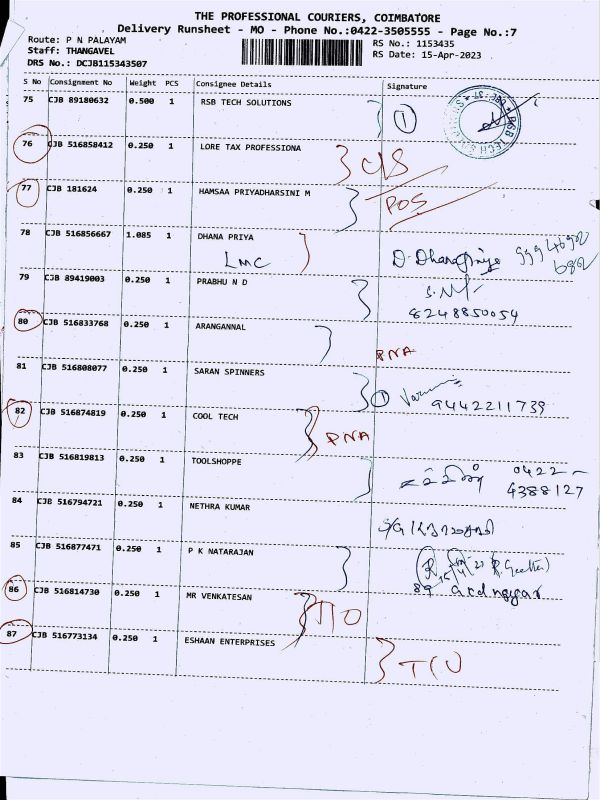 THE PROFESSIONAL COURIERS, COIMBATORE
Delivery Runsheet - MO - Phone No.:0422-3505555 - Page No.:7
Route: P N PALAYAM
Staff: THANGAVEL
DRS No.: DCJB115343507
RS No.: 1153435
RS Date: 15-Apr-2023
S No Consignment No Weight PCS Consignee Details Signature
75 CJB 89180632 0.500 1 RSB TECH SOLUTIONS 1
76 CJB 516858412 0.250 1 LORE TAX PROFESSIONA C/S
77 CJB 181624 0.250 1 HAMSAA PRIYADHARSINI M POS
78 CJB 516856667 1.085 1 DHANA PRIYA D. Dhanapriya
LMC
79 CJB 89419003 0.250 1 PRABHU N D
8248850054
80 CJB 516833768 0.250 1 ARANGANNAL PNA
81 CJB 516808077 0.250 1 SARAN SPINNERS 1
9442211739
82 CJB 516874819 0.250 1 COOL TECH PNA
83 CJB 516819813 0.250 1 TOOLSHOPPE 0422-
4388127
84 CJB 516794721 0.250 1 NETHRA KUMAR
85 CJB 516877471 0.250 1 P K NATARAJAN
86 CJB 516814730 0.250 1 MR VENKATESAN
87 CJB 516773134 0.250 1 ESHAAN ENTERPRISES